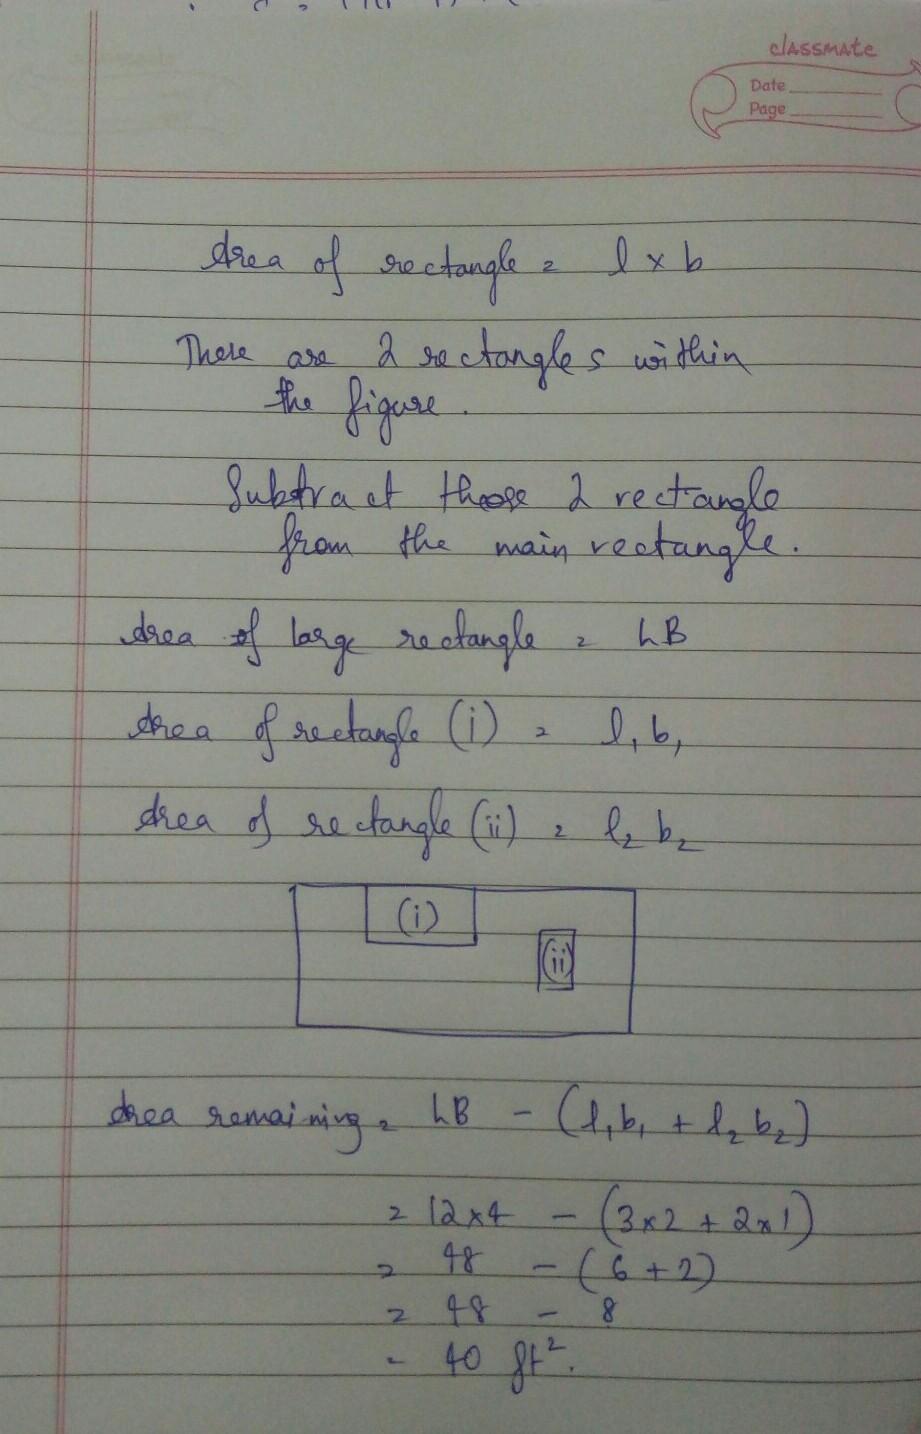 classmate
Date
Page
Area of rectangle = l × b
There are 2 rectangles within
the figure.
Subtract those 2 rectangle
from the main rectangle.
Area of large rectangle = LB
Area of rectangle (i) = l₁ b₁
Area of rectangle (ii) = l₂ b₂
(i)
(ii)
Area remaining = LB - (l₁b₁ + l₂b₂)
= 12×4 - (3×2 + 2×1)
= 48 - (6+2)
= 48 - 8
= 40 ft².